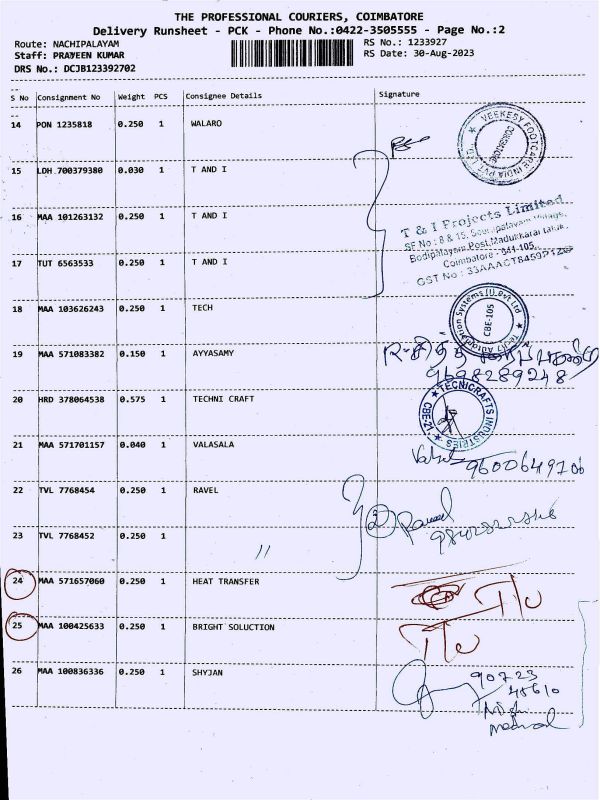 THE PROFESSIONAL COURIERS, COIMBATORE
Delivery Runsheet - PCK - Phone No.:0422-3505555 - Page No.:2
Route: NACHIPALAYAM RS No.: 1233927
Staff: PRAVEEN KUMAR RS Date: 30-Aug-2023
DRS No.: DCJB123392702
S No Consignment No Weight PCS Consignee Details Signature
14 PON 1235818 0.250 1 WALARO
VEEKESY FOOTCARE INDIA PVT LTD
15 LDH 700379380 0.030 1 T AND I
16 MAA 101263132 0.250 1 T AND I
T & I Projects Limited
SF No : 8 & 15,
Bodipalayam Post, Madukkarai
Coimbatore - 641 105.
GST No : 
17 TUT 6563533 0.250 1 T AND I
18 MAA 103626243 0.250 1 TECH
CBE-105
19 MAA 571083382 0.150 1 AYYASAMY
9698289248
20 HRD 378064538 0.575 1 TECHNI CRAFT
TECNICRAFTS INDUSTRIES
CBE-21
21 MAA 571701157 0.040 1 VALASALA
22 TVL 7768454 0.250 1 RAVEL
2
23 TVL 7768452 0.250 1 //
24 MAA 571657060 0.250 1 HEAT TRANSFER
25 MAA 100425633 0.250 1 BRIGHT SOLUCTION
26 MAA 100836336 0.250 1 SHYJAN
90723
48610